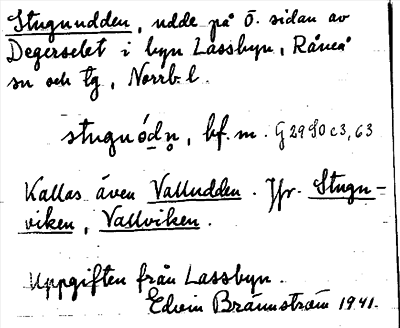 Stugnudden, udde på ö. sidan av
Degerselet i byn Lassbyn, Råneå
sn och tg, Norrb. l.
stugnódn̥, bf. m. G2980c3,63
Kallas även Valludden. Jfr. Stugn-
viken, Vallviken.
Uppgiften från Lassbyn.
Edvin Brännström 1941.